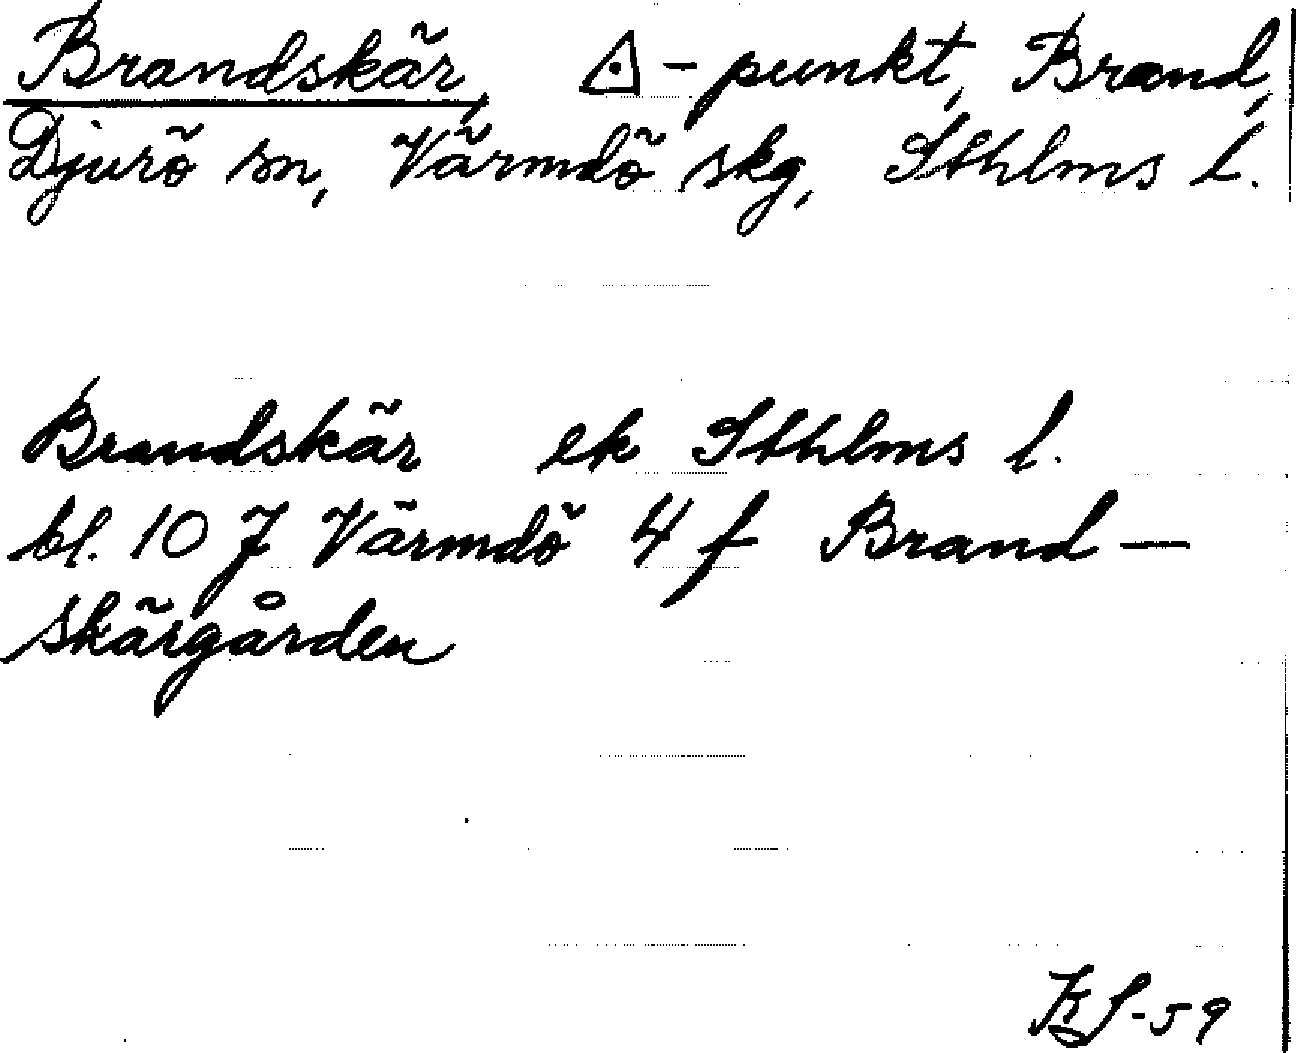 Brandskär, △-punkt, Brand,
Djurö sn, Värmdö skg, Sthlms l.
Brandskär ek Sthlms l.
bl. 10 J Värmdö 4 f Brand-
skärgården
KS-59